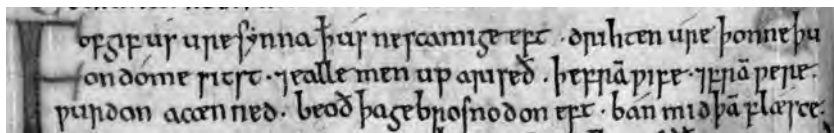 Forgif us ure synna þ us ne scamige eft · drihten ure þonne þu
on dome sitst · ⁊ ealle men up ariseð · þe frā wife · ⁊ frā were ·
wurdon acenned · beoð þa gebrosnodon eft · bán mid þā flæsce ·